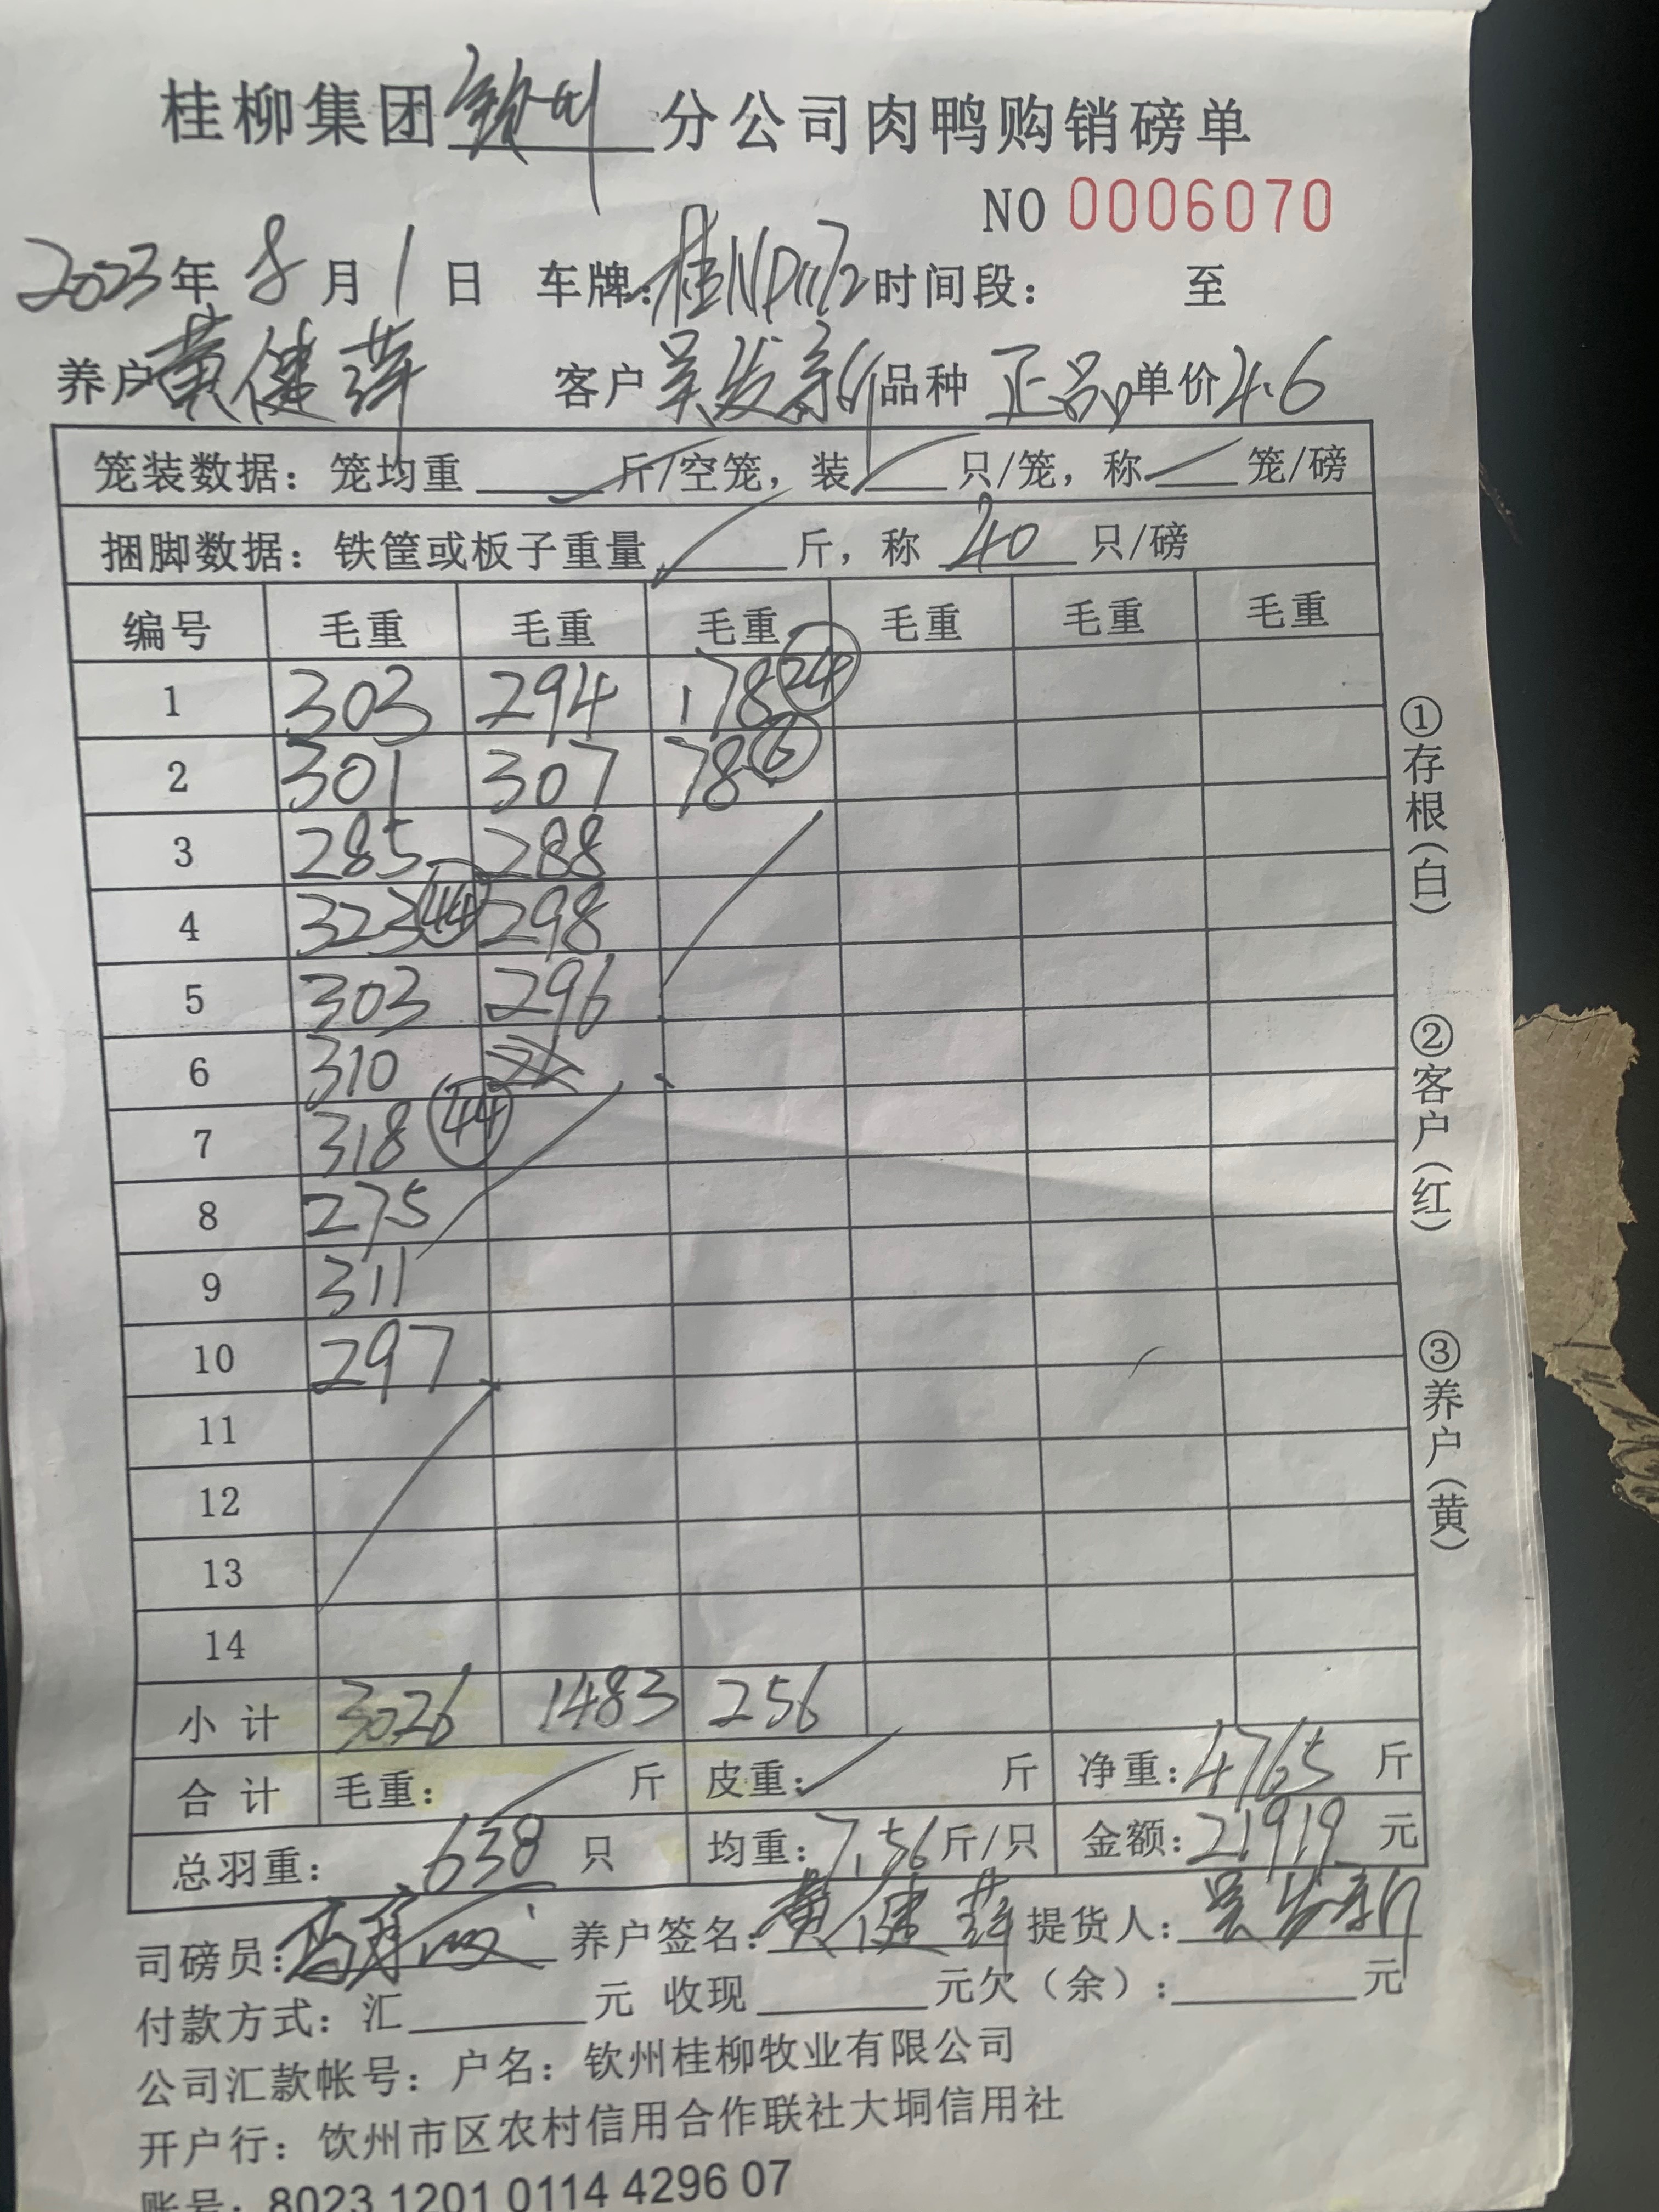 桂柳集团钦州分公司肉鸭购销磅单
NO 0006070
2023年8月1日 车牌:桂NP1172时间段: 至
养户黄健萍 客户吴发新品种 正品 单价4.6
笼装数据: 笼均重 斤/空笼, 装 只/笼, 称 笼/磅
捆脚数据: 铁筐或板子重量 斤, 称 40 只/磅
编号 毛重 毛重 毛重 毛重 毛重 毛重
1 303 294 178 24
2 301 307 78 6
3 285 288
4 323 44 298
5 303 296
6 310
7 318 44
8 275
9 311
10 297
11
12
13
14
小计 3026 1483 256
合计 毛重: 斤 皮重: 斤 净重: 4765 斤
总羽重: 638 只 均重: 7.56 斤/只 金额: 21919 元
司磅员: 养户签名: 黄健萍 提货人: 吴发新
付款方式: 汇 元 收现 元欠(余): 元
公司汇款帐号: 户名: 钦州桂柳牧业有限公司
开户行: 钦州市区农村信用合作联社大垌信用社
账号: 8023 1201 0114 4296 07
①存根(白)
②客户(红)
③养户(黄)